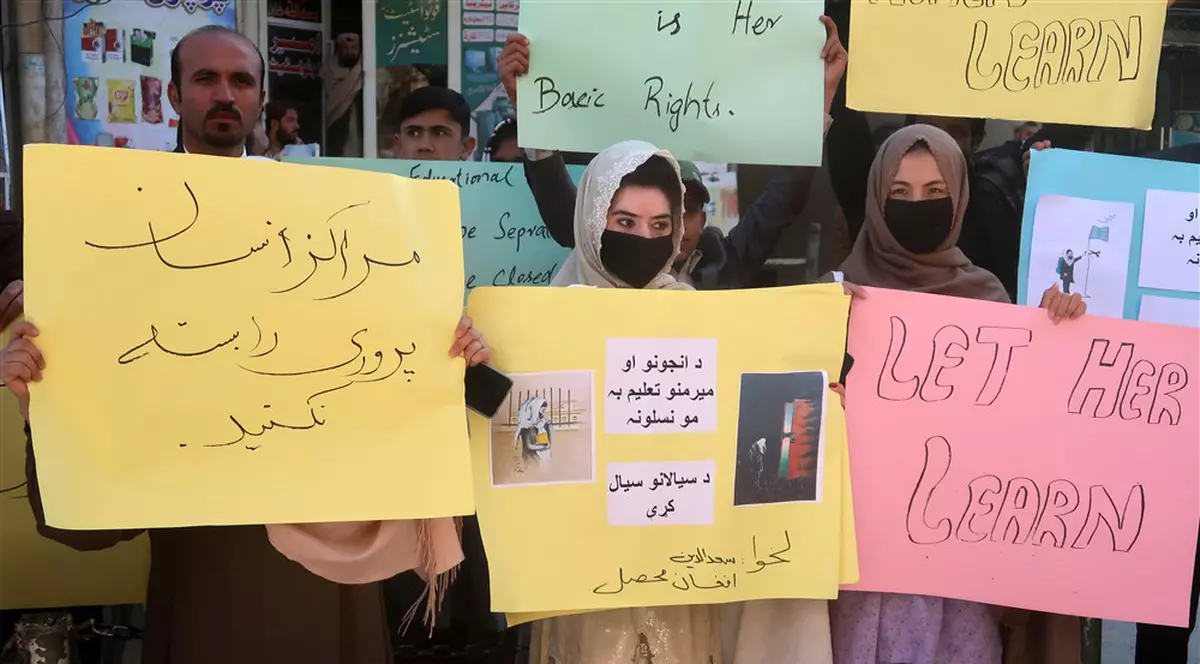 فوٹو اسٹیٹ
اسٹیشنرز
is Her
Basic Rights.
LEARN
Educational
be Seprat
be Closed
مراکز انسان
پروری را بسته
نکنید.
د انجونو او
میرمنو تعلیم به
مو نسلونه
د سیالانو سیال
کړي
لخوا: سعدالدین
افغان محصل
LET HER
LEARN